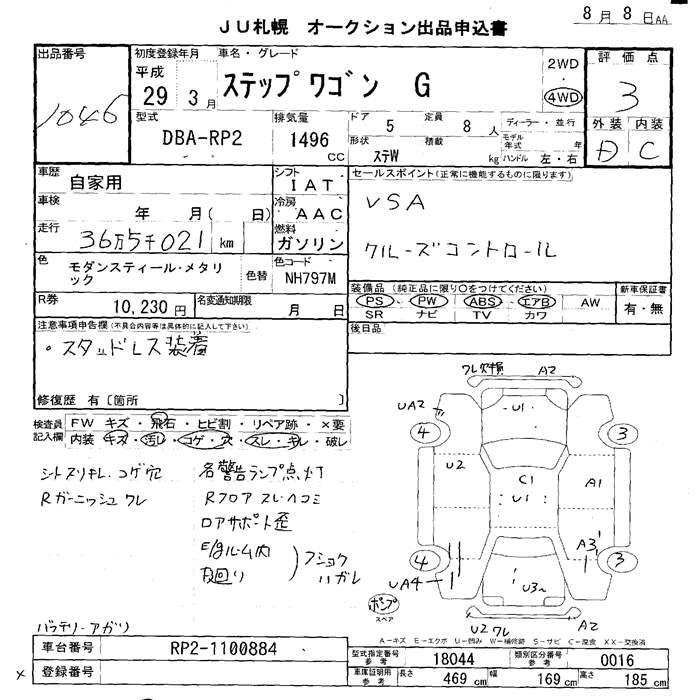 8月8日AA
JU札幌 オークション出品申込書
出品番号
1046
初度登録年月
平成
29 3月
車名・グレード
ステップワゴン G
2WD
4WD
評価点
3
外装 内装
D C
型式
DBA-RP2
排気量
1496
cc
ドア
5
定員
8人
形状
ステW
積載
kg
ディーラー・並行
モデル年式 年
ハンドル 左・右
車歴
自家用
シフト
IAT
車検
年 月( 日)
冷房
AAC
走行
36万5千021km
燃料
ガソリン
色
モダンスティール・メタリ
ック
色替
色コード
NH797M
R券
10,230円
名変通知期限
月 日
セールスポイント(正常に機能するものに限ります)
VSA
クルーズコントロール
装備品(純正品に限り○をつけてください)
PS・PW・ABS・エアB AW
SR ナビ TV カワ
新車保証書
有・無
後日品
注意事項申告欄(不具合内容等は具体的に記入して下さい)
・スタッドレス装着
修復歴 有[箇所 ]
検査員
記入欄
FW キズ・飛石・ヒビ割・リペア跡・×要
内装 キズ・汚レ・コゲ・穴・スレ・キレ・破レ
シートスリキレ・コゲ穴
Rガーニッシュワレ
各警告ランプ点灯
Rフロアスレ・ヘコミ
ロアサポート歪
E/gルーム内
下回り
フショク
ハガレ
バッテリーアガリ
ワレ欠損 A2
UA2
U1
4
3
U2
C1
U1
A1
A3
4
3
UA4
U3
ポンプ
スペア
U2ワレ A2
A-キズ E-エクボ U-凹み W-補修跡 S-サビ C-腐食 XX-交換済
車台番号
RP2-1100884
×
登録番号
型式指定番号
参考
18044
類別区分番号
参考
0016
車庫証明用
参考
長さ
469 cm
幅
169 cm
高さ
185 cm